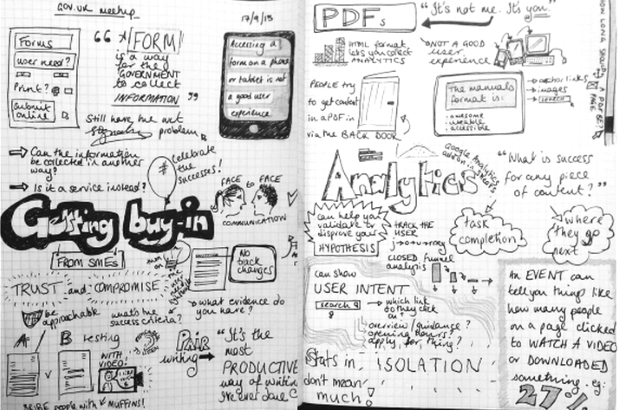 GOV.UK meetup
17/9/15
Forms
user need?
Print?
submit online
"A FORM
is a way
for the
GOVERNMENT
to collect
INFORMATION"
Accessing a
form on a phone
or tablet is not
a good user
experience
Still have the
problem
Can the information
be collected in another
way?
Is it a service instead?
celebrate
the
successes!
FACE to FACE
COMMUNICATION
Getting buy-in
FROM SMEs
TRUST and COMPROMISE
No
track
changes
be approachable
what's the
success criteria?
What evidence do
you have?
A B testing
WITH
VIDEO!
BRIBE people with MUFFINS!
PAIR
writing
"It's the
most
PRODUCTIVE
way of writing
I've ever done"
PDFs
"It's not me. It's you"
HTML format
lets you collect
ANALYTICS
NOT A GOOD
user
experience
PEOPLE try
to get content
in a PDF in
via the BACK DOOR
The manuals
format is:
awesome
useable
accessible
anchor links
images
search
Analytics
Google Analytics
can help you
validate or
disprove your
HYPOTHESIS
TRACK THE
USER
CLOSED funnel
analysis
"What is success
for any piece
of content?"
task
completion
where
they go
next
can show
USER INTENT
search
which link
do they click
on?
overview/guidance?
opening hours?
apply for thing?
Stats in ISOLATION
don't mean
much!
An EVENT can
tell you things like
how many people
on a page clicked
to WATCH A VIDEO
or DOWNLOADED
something. eg:
27%